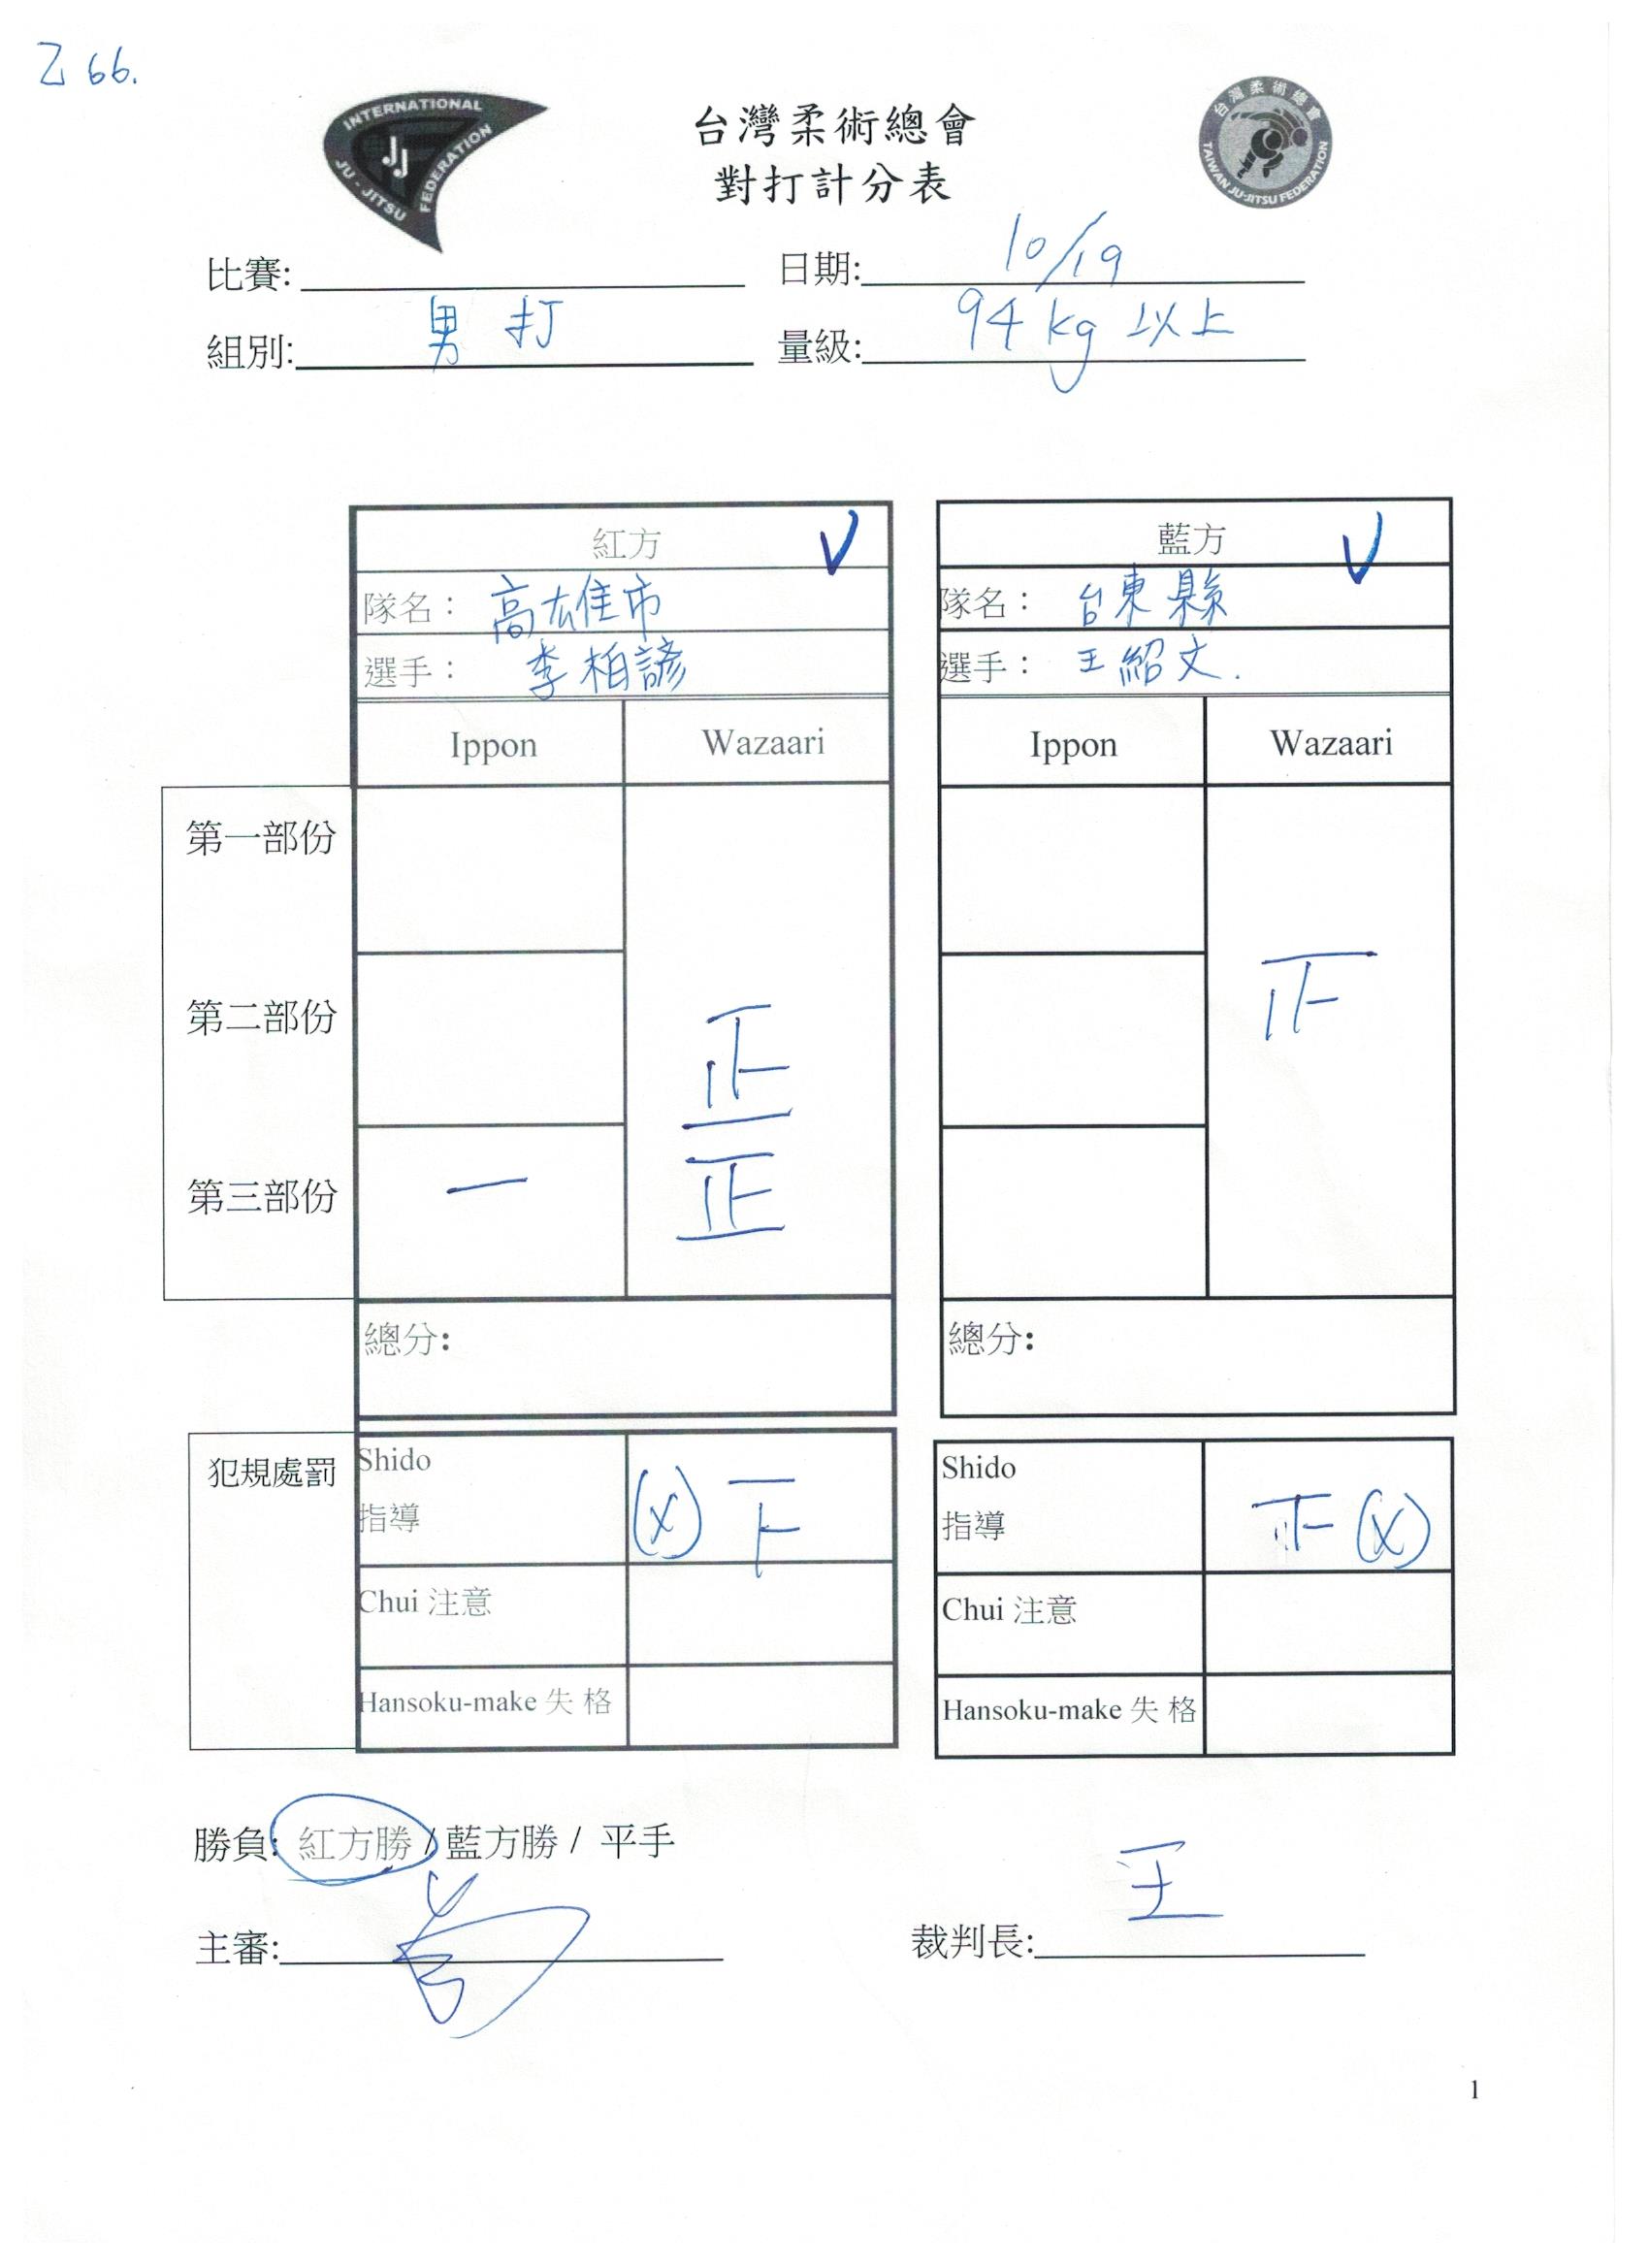 乙 66.
INTERNATIONAL
JU-JITSU
FEDERATION
JJ
台灣柔術總會
對打計分表
台灣柔術總會
TAIWAN JU-JITSU FEDERATION
比賽: 日期: 10/19
組別: 男打 量級: 94 kg 以上
紅方 V 藍方 V
隊名： 高雄市 隊名： 台東縣
選手： 李柏諺 選手： 王紹文.
Ippon Wazaari Ippon Wazaari
第一部份
第二部份 正
第三部份 一 正
總分: 總分:
犯規處罰
Shido (x) Shido (x)
指導 指導
Chui 注意 Chui 注意
Hansoku-make 失 格 Hansoku-make 失 格
勝負: 紅方勝 / 藍方勝 / 平手
主審: 裁判長: 王
1